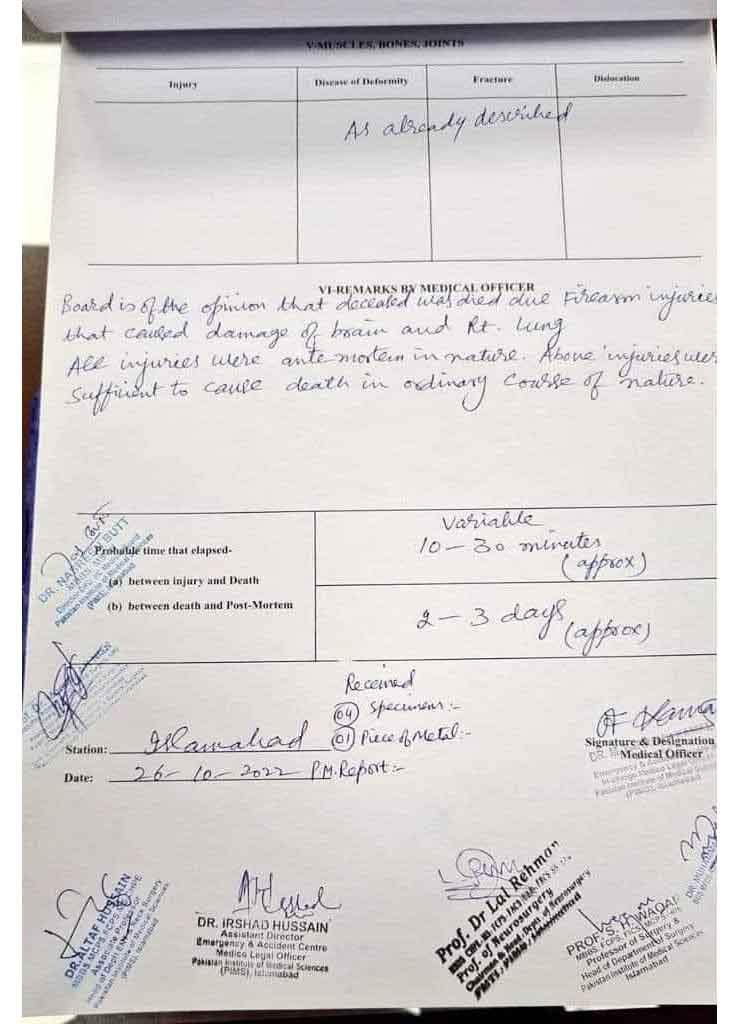 V-MUSCLES, BONES, JOINTS
Injury
Disease of Deformity
Fracture
Dislocation
As already described
VI-REMARKS BY MEDICAL OFFICER
Board is of the opinion that deceased was died due Firearm injuries
that caused damage of brain and Rt. lung
All injuries were ante mortem in nature. Above injuries wer
Sufficient to cause death in ordinary course of nature.
Probable time that elapsed-
(a) between injury and Death
(b) between death and Post-Mortem
Variable
10-30 minutes
(approx)
2-3 days
(approx)
Received
04 Specimens:-
01 Piece of Metal:-
P.M. Report:-
Station: Islamabad
Date: 26-10-2022
Signature & Designation
Medical Officer
DR. ALTAF HUSSAIN
DR. IRSHAD HUSSAIN
Assistant Director
Emergency & Accident Centre
Medico Legal Officer
Pakistan Institute of Medical Sciences
(PIMS), Islamabad
Prof. Dr Lal Rehman
Prof. of Neurosurgery
Professor of Surgery &
Head of Department of Surgery
Pakistan Institute of Medical Sciences
Islamabad